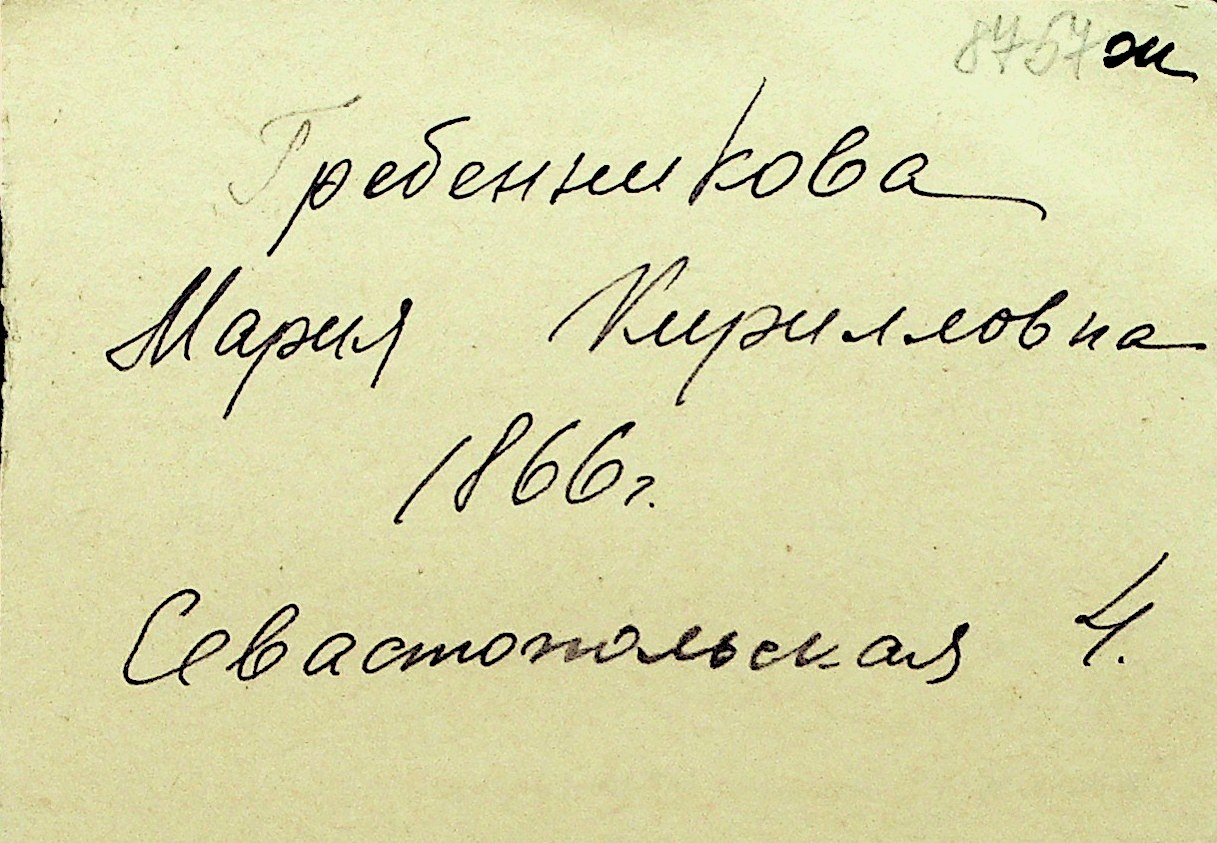 8757 ж
Гребенникова
Мария Кирилловна
1866г.
Севастопольская 4.